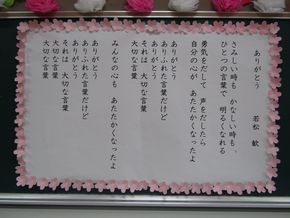 ありがとう
若松 歓
さみしい時も かなしい時も、
ひとつの言葉で 明るくなれる
勇気をだして 声をだしたら
自分の心が あたたかくなったよ
ありがとう
ありふれた言葉だけど
ありがとう
それは 大切な言葉
大切な言葉
みんなの心も あたたかくなったよ
ありがとう
ありふれた言葉だけど
ありがとう
それは 大切な言葉
大切な言葉
大切な言葉